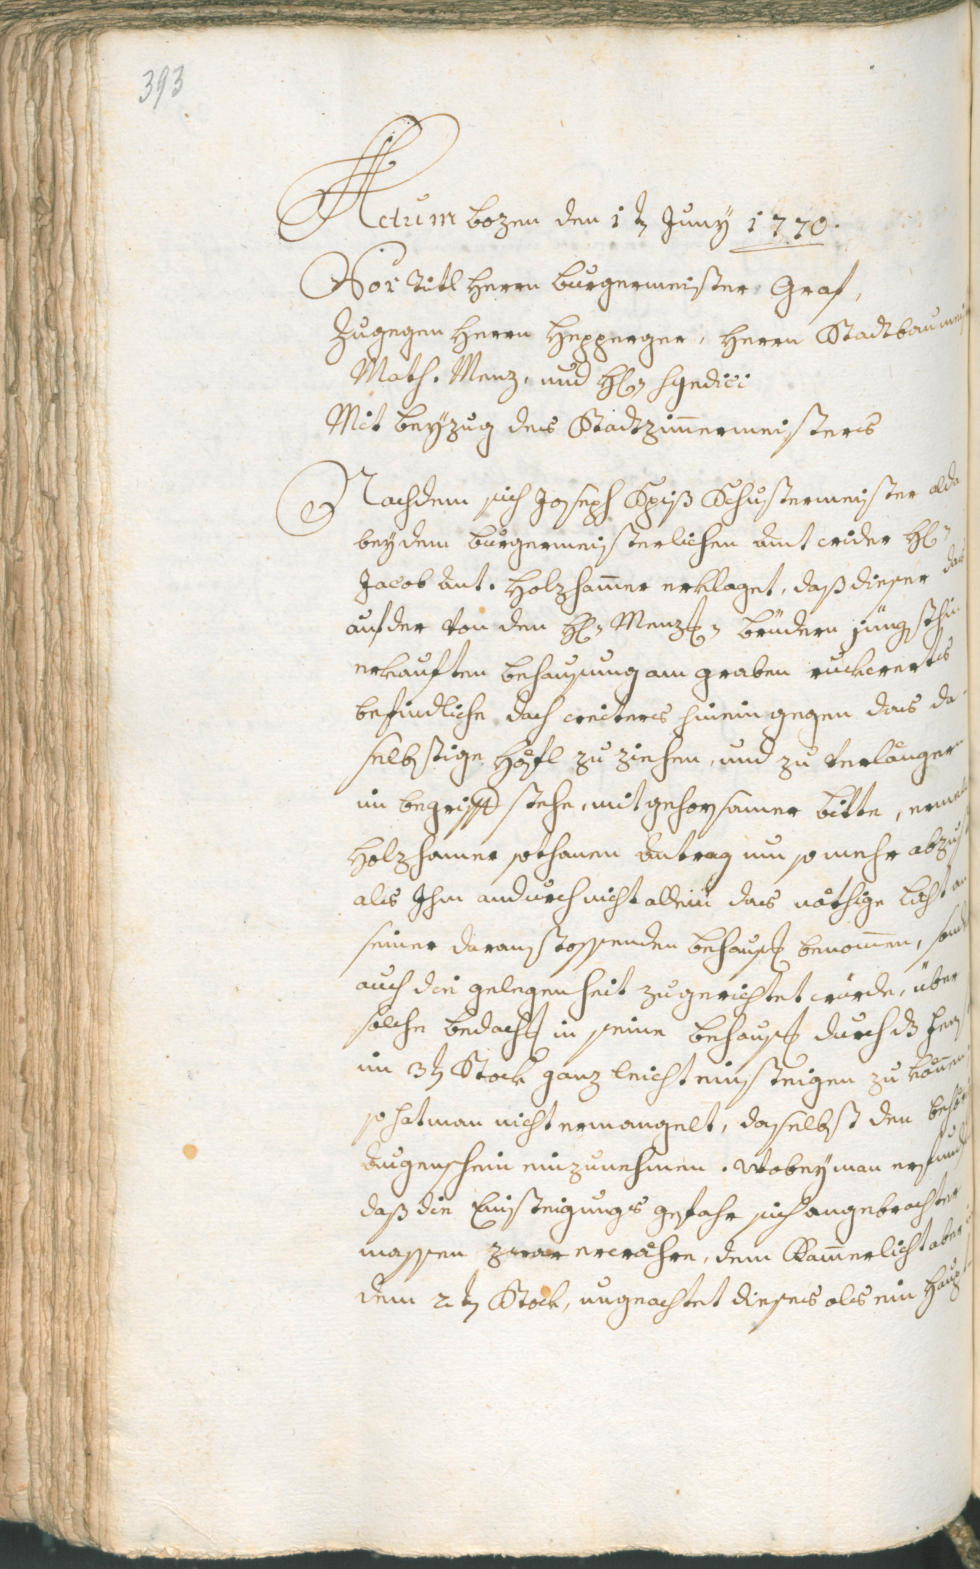 393
Actum bozen den 1t Juny 1770.
Vor Titl Herrn burgermeister Graf,
Zugegen Herrn Hepperger, Herrn Stadtbaumei
Math. Menz, und Hl. Syndici
Mit beyzug des Stadtzimmermeisters
Nachdem sich Joseph Spiß Schustermeister alda
bey dem burgermeisterlichen amt wider Hl.
Jacob Ant. Holzhamer erklaget, daß dieser das
auf der von den Hl. Menzischen brüdern jüngsthin
erkauften behausung am graben ruckwerts
befindliche dach weiters hinein gegen das da
selbstige Höfl zu ziehen, und zu verlängern
im begriff stehe, mit gehorsamer bitte, ermelt
Holzhamer sothanen antrag um so mehr
als Ihm andurch nicht allein das nöthige liecht an
seiner daranstossenden behausung benommen, sonde
auch die gelegenheit zugerichtet würde, über
solche bedachung in seine behausung durch
im 3t Stock ganz leicht einsteigen zu können
so hat man nicht ermangelt, daselbst den
Augenschein einzunehmen. Wobey man erfund
daß die Einsteigungs gefahr sich angebrachter
massen zwar erwahre, dem Kammerliecht aber
dem 2t Stock, ungeachtet dieses als ein Haupt